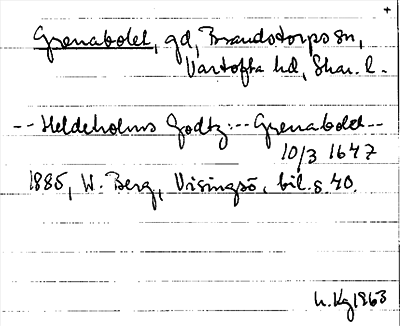 Grenabolet, gd, Brandstorps sn,
Vartofta hd, Skar. l.
-- Heldeholms Godtz:-- Grenabolet --
10/3 1647
1885, W. Berg, Visingsö, bil. s. 40.
h. Kg 1863